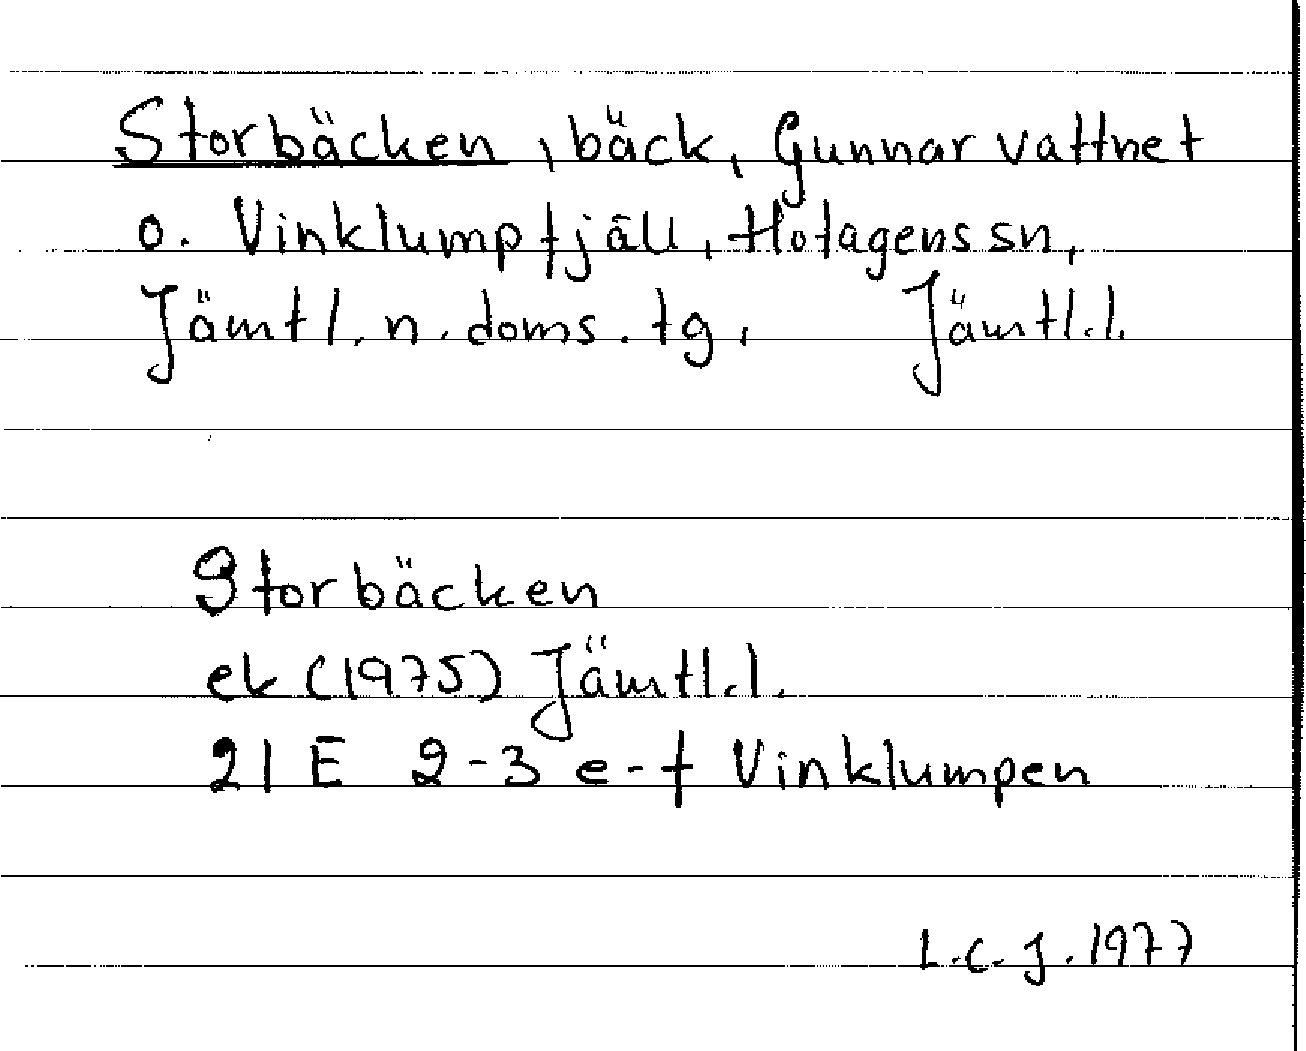 Storbäcken, bäck, Gunnarvattnet
o. Vinklumpfjäll, Hotagens sn,
Jämtl. n. doms. tg, Jämtl.l.
Storbäcken
ek (1975) Jämtl.l.
21 E 2-3 e-f Vinklumpen
L.C.J. 1977